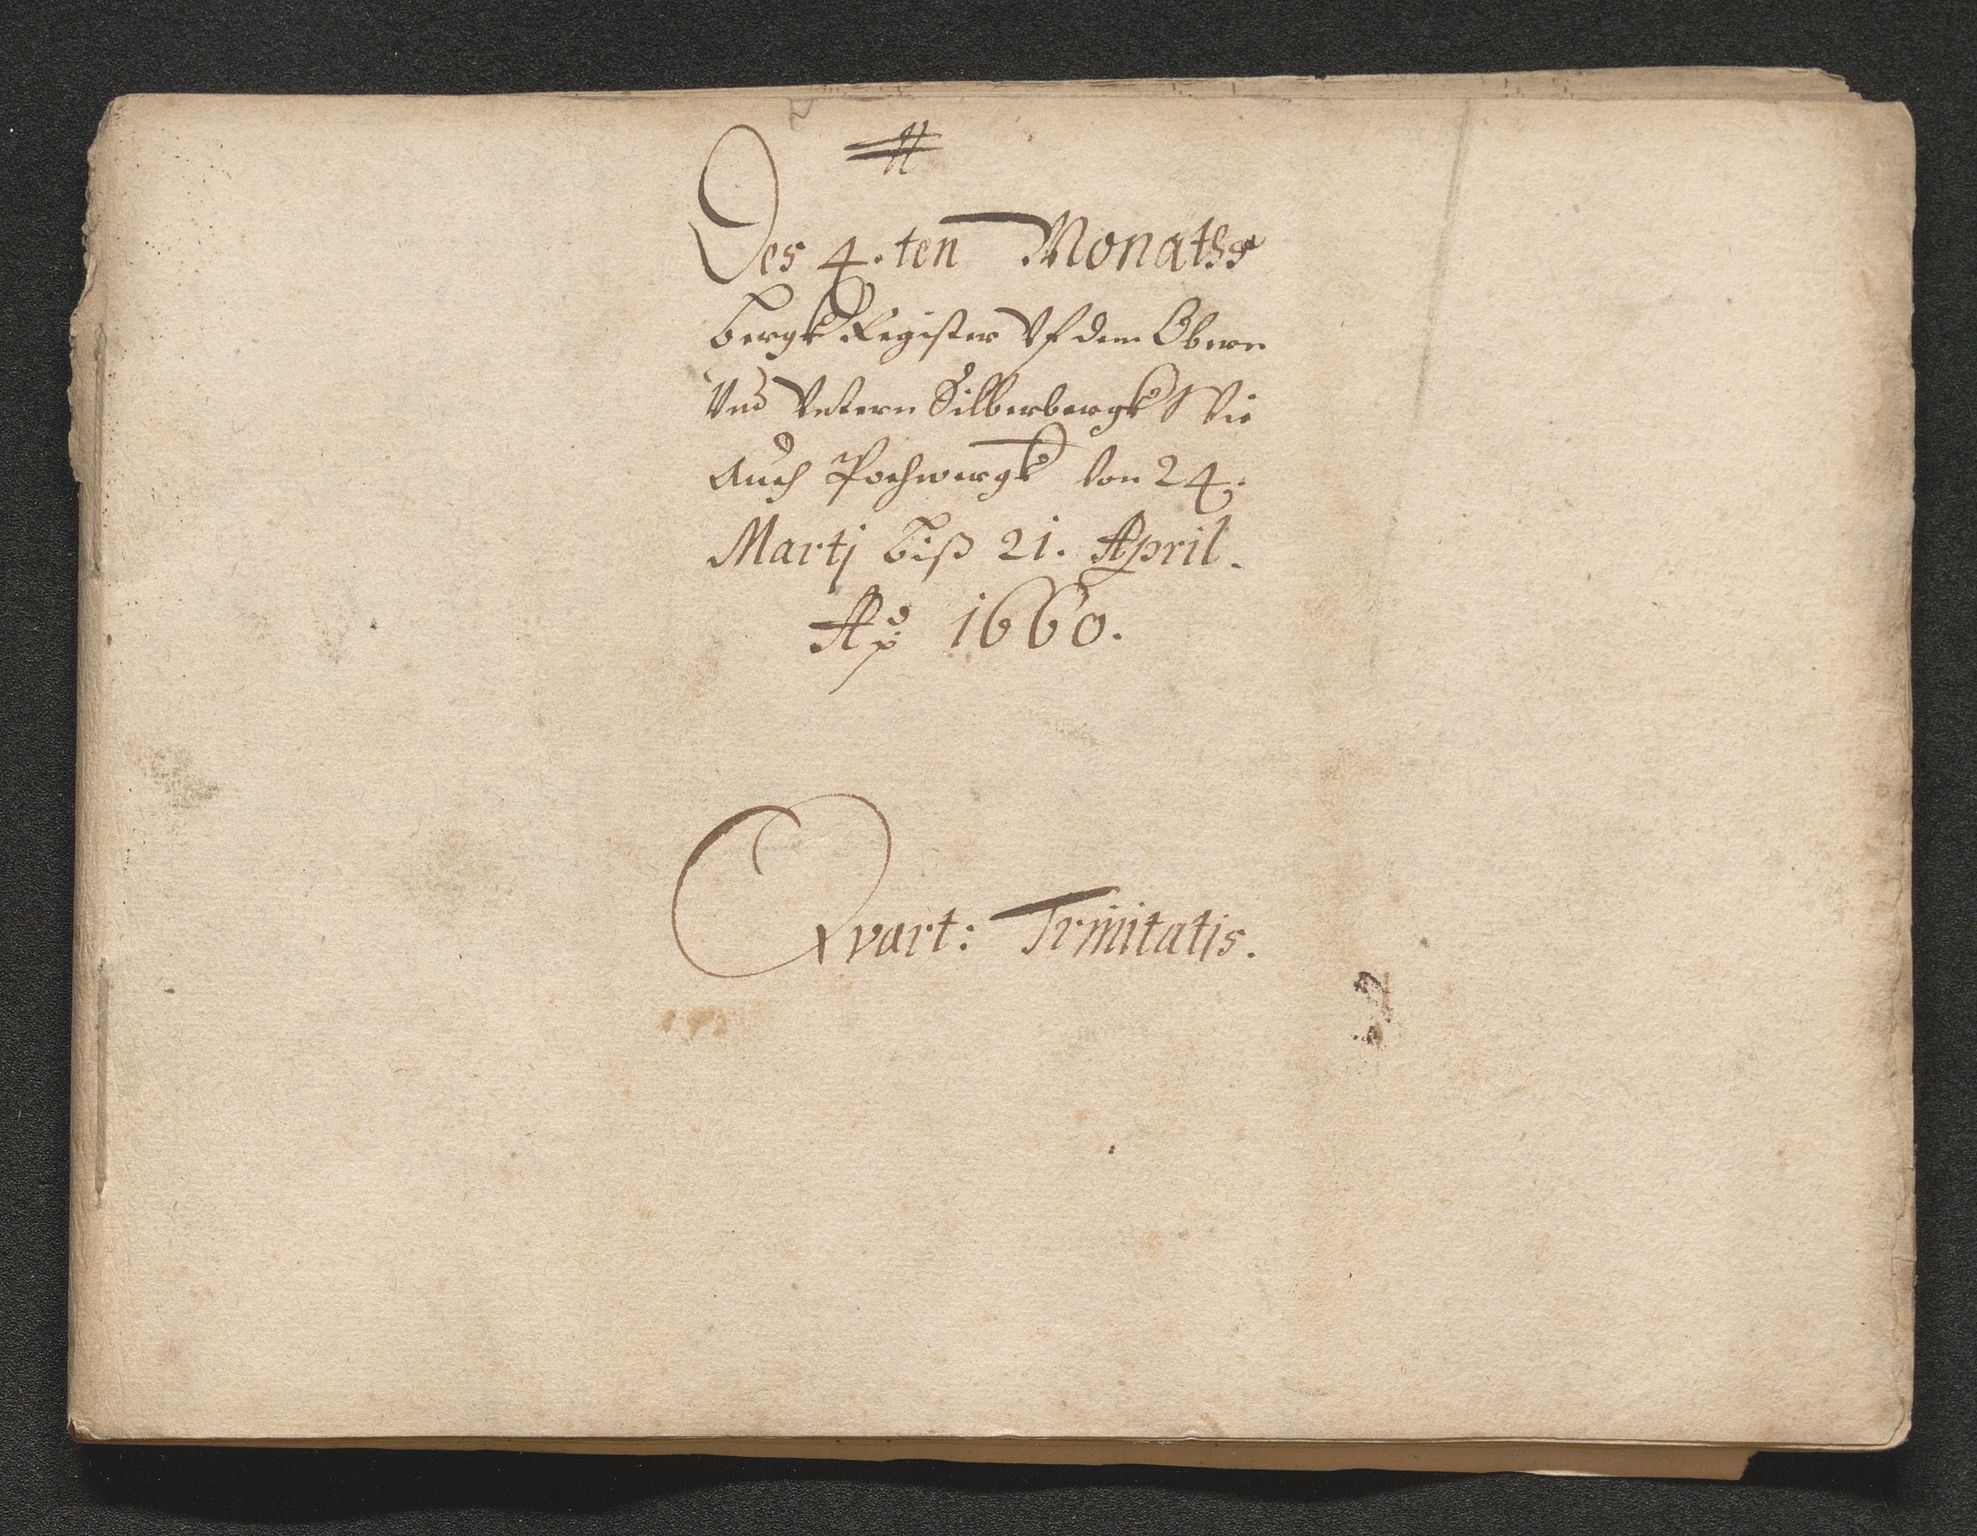 Des 4.ten Monaths
Bergk Register Vf dem Obern
Vnd Vntern Silberbergk Wie
Auch Pochwergk Von 24.
Martj Biß 21. April.
Ao 1660.
Qvart: Trinitatis.